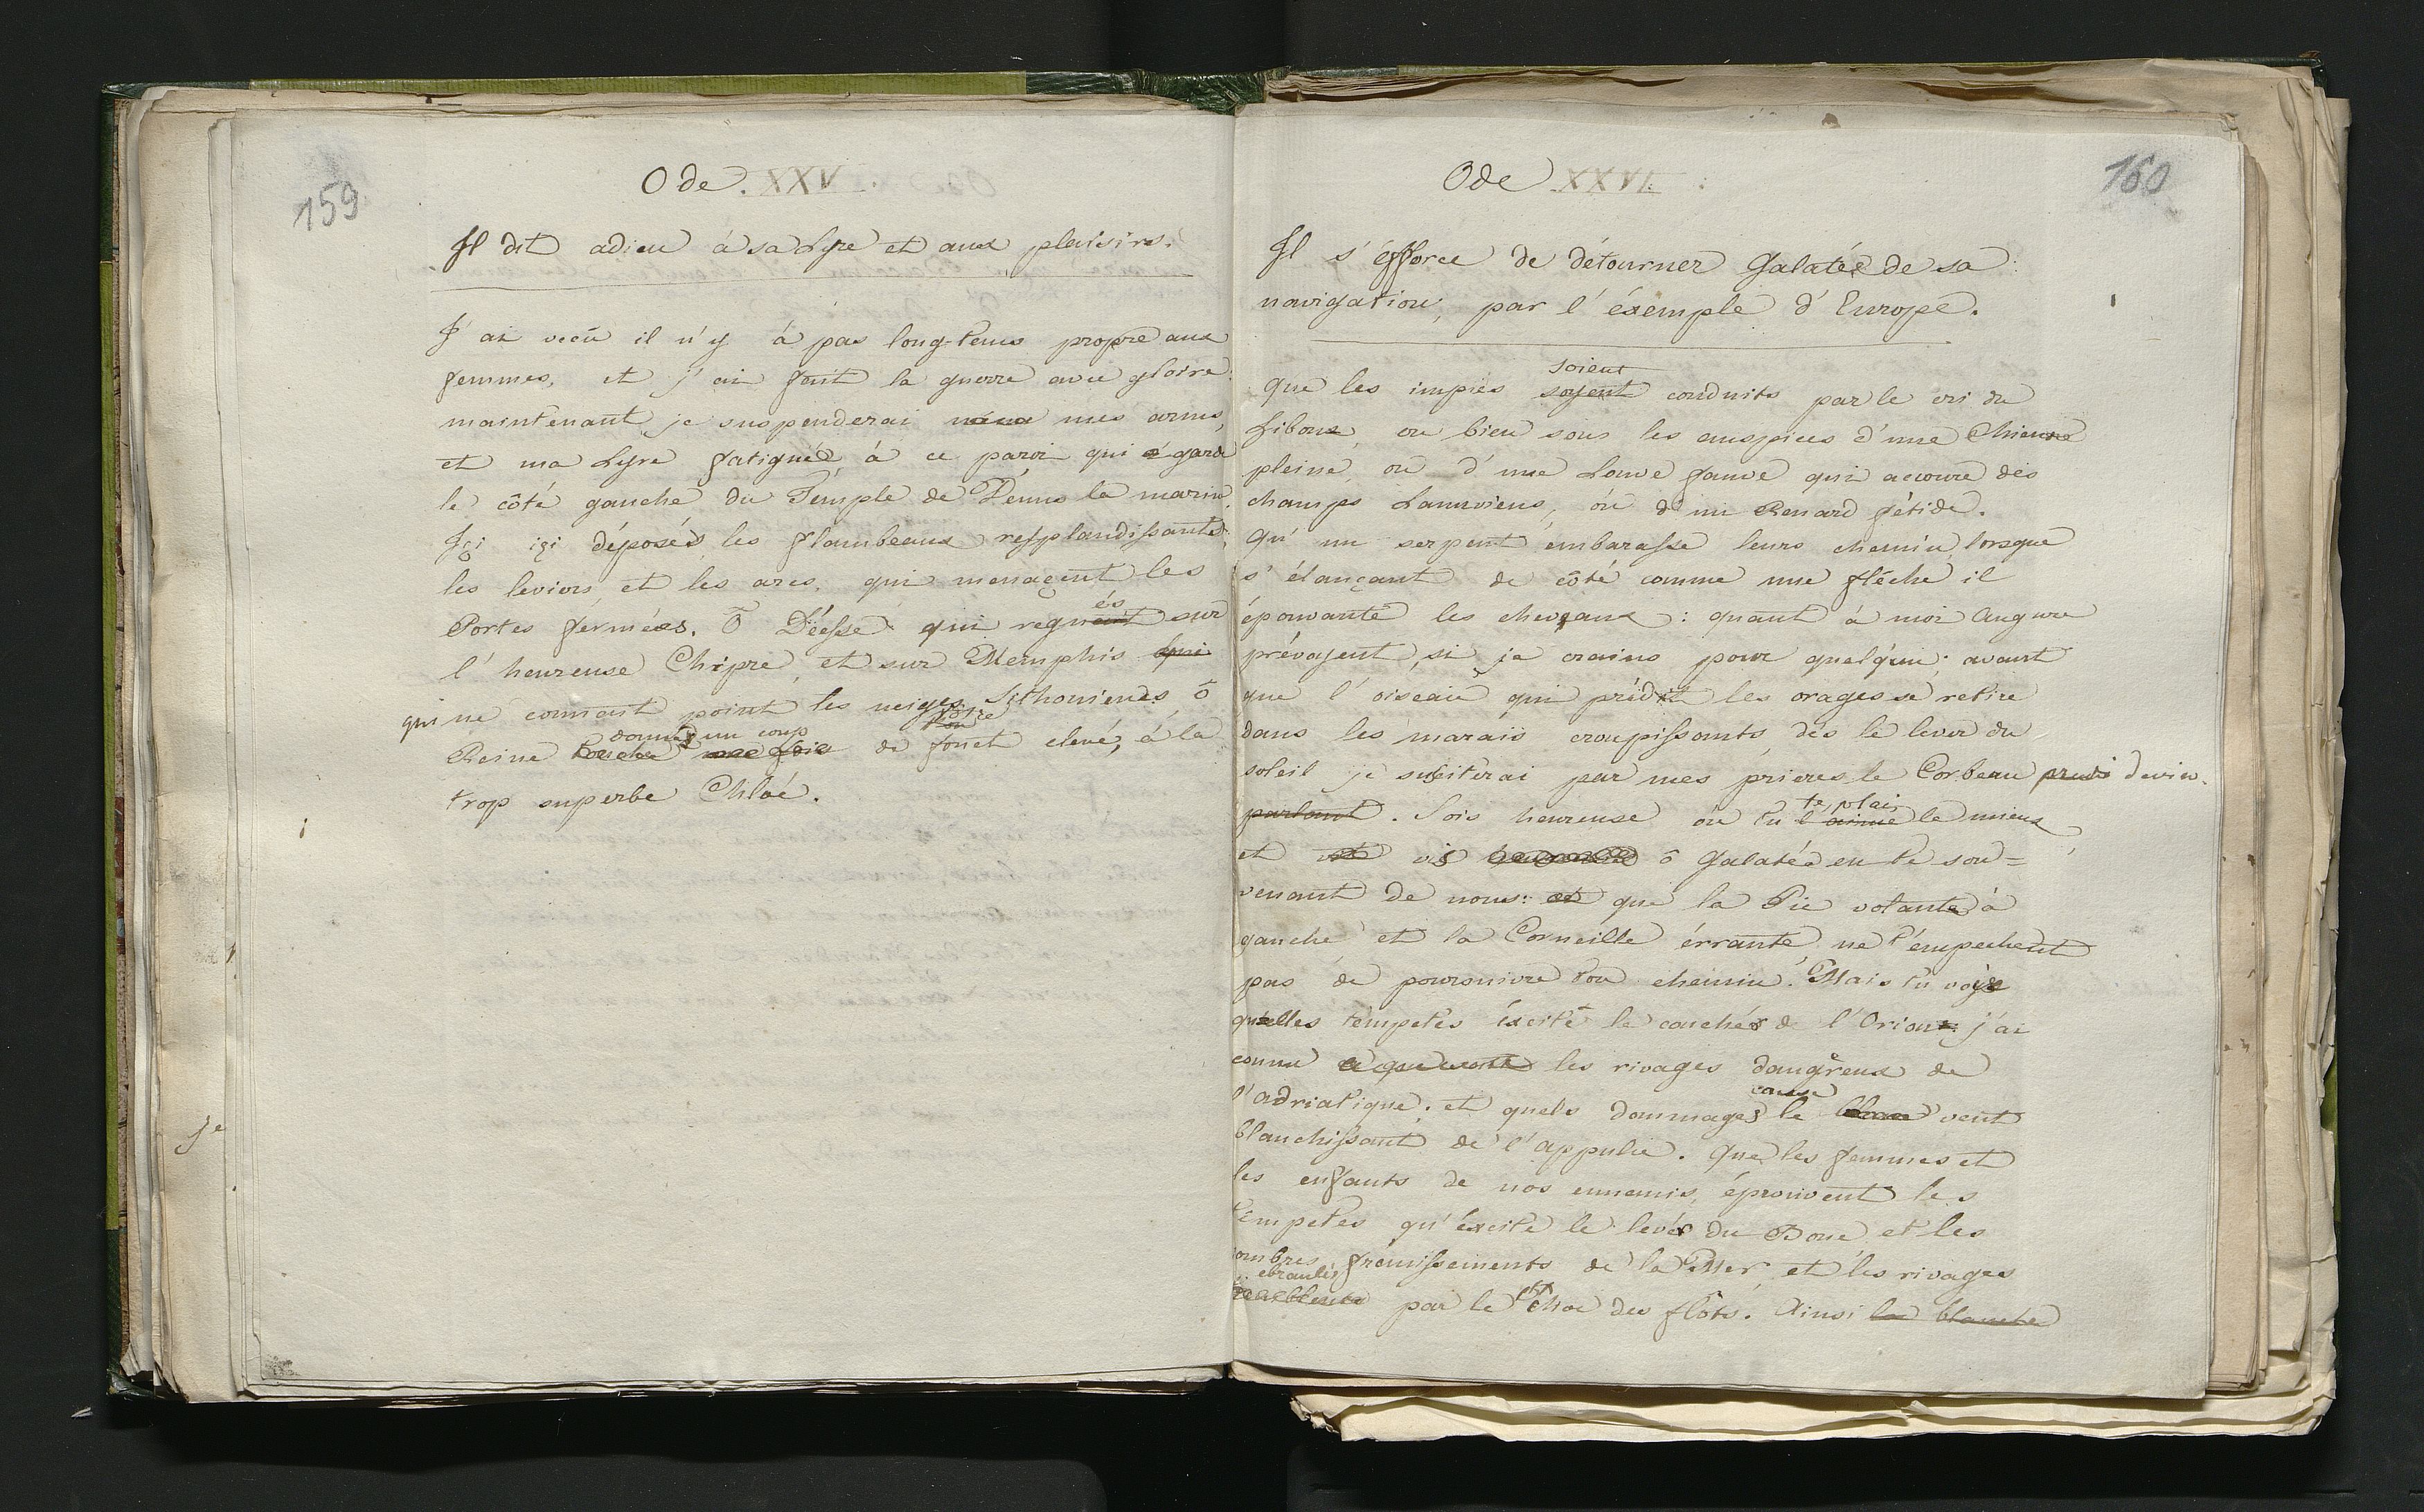 159
Ode. XXV.
Il dit adieu à sa Lyre et aux plaisirs.
J'ai vecû il n'y à pas long-tems propre aux
femmes, et j'ai fait la guerre avec gloire.
maintenant je suspenderai mes armes,
et ma Lyre fatiguée, à ce paroi qui garde
le côté gauche du Témple de Vénus la marine.
Içi içi déposés les flambeaux resplandissants,
les leviers et les arcs, qui menaçent les
Portes fermées. Ô Déesse qui regnés sur
l'heureuse Chipre, et sur Memphis qui
qui ne connait point les neiges Sithonienes, ô
donnes un coup votre
Reine touche une fois de fouet elevé, à la
trop superbe Chloé.
je
160
Ode XXVI.
Il s'éfforce de détourner Galatée de sa
navigation, par l'éxemple d'Europe.
soient
que les impies soyent conduits par le cri du
Liboux ou bien sous les auspices d'une Chienne
pleine, ou d'une Louve fauve qui accoure des
champs Lanuviens, ou d'un Renard fétide.
Qu'un serpent embarasse leurs chemin, lorsque
s'élançant de côté comme une fléche il
épouvante les chevaux : quant à moi Augure
prévoyent, si je crains pour quelqu'un : avant
que l'oiseau qui prédit les orages se retire
dans les marais croupissants, dès le lever du
soleil je susciterai par mes prieres le Corbeau devin.
te plait
parlant. Sois heureuse où tu l'aime le mieux,
et vis ô Galatée en te sou=
venant de nous: et que la Pie volante à
gauche et la Corneille érrante, ne t'émpechent
pas de poursuivre ton chemin. Mais tu voye
quelles tempetes éxcite le couchér de l'Orion: j'ai
connu les rivages dangereux de
cause
l'adriatique: et quels dommages le vent
blanchissant de l'appulie. Que les femmes et
les enfants de nos ennemis, éprouvent les
tempetes qu'éxcite le levér du Bouc et les
sombres frémissements de la Mer, et les rivages
ebranlés
tremblents par le choc des flôts. Ainsi la blanche